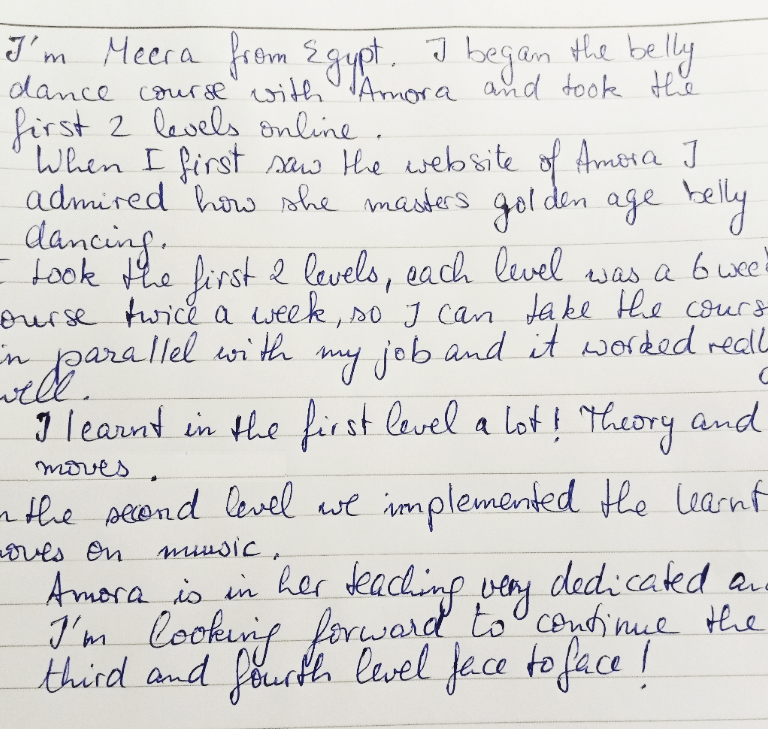 I'm Meera from Egypt. I began the belly
dance course with Amora and took the
first 2 levels online.
When I first saw the website of Amora I
admired how she masters golden age belly
dancing.
I took the first 2 levels, each level was a 6 week
ourse twice a week, so I can take the cours
in parallel with my job and it worked reall
well.
I learnt in the first level a lot! Theory and
moves.
n the second level we implemented the learnt
oves on muusic.
Amora is in her teaching very dedicated an
I'm looking forward to continue the
third and fourth level face to face!